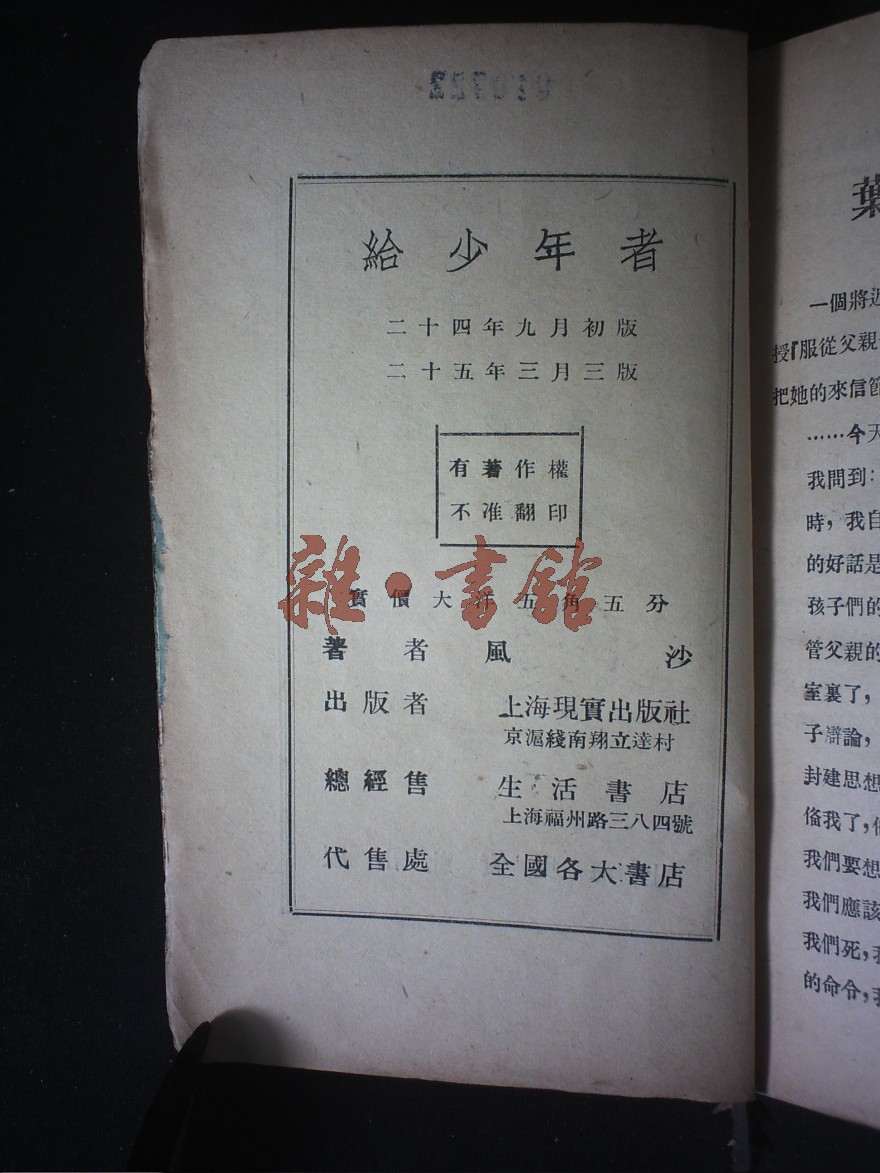 給少年者
二十四年九月初版
二十五年三月三版
有著作權
不准翻印
雜·書館
實價大洋五角五分
著者 風沙
出版者 上海現實出版社
京滬綫南翔立達村
總經售 生活書店
上海福州路三八四號
代售處 全國各大書店
葉
一個將近
授『服從父親
把她的來信節
……今天
我問到：
時，我自
的好話是
孩子們的
管父親的
室裏了，
子辯論，
封建思想
我了，
我們要想
我們應該
我們死，
的命令，